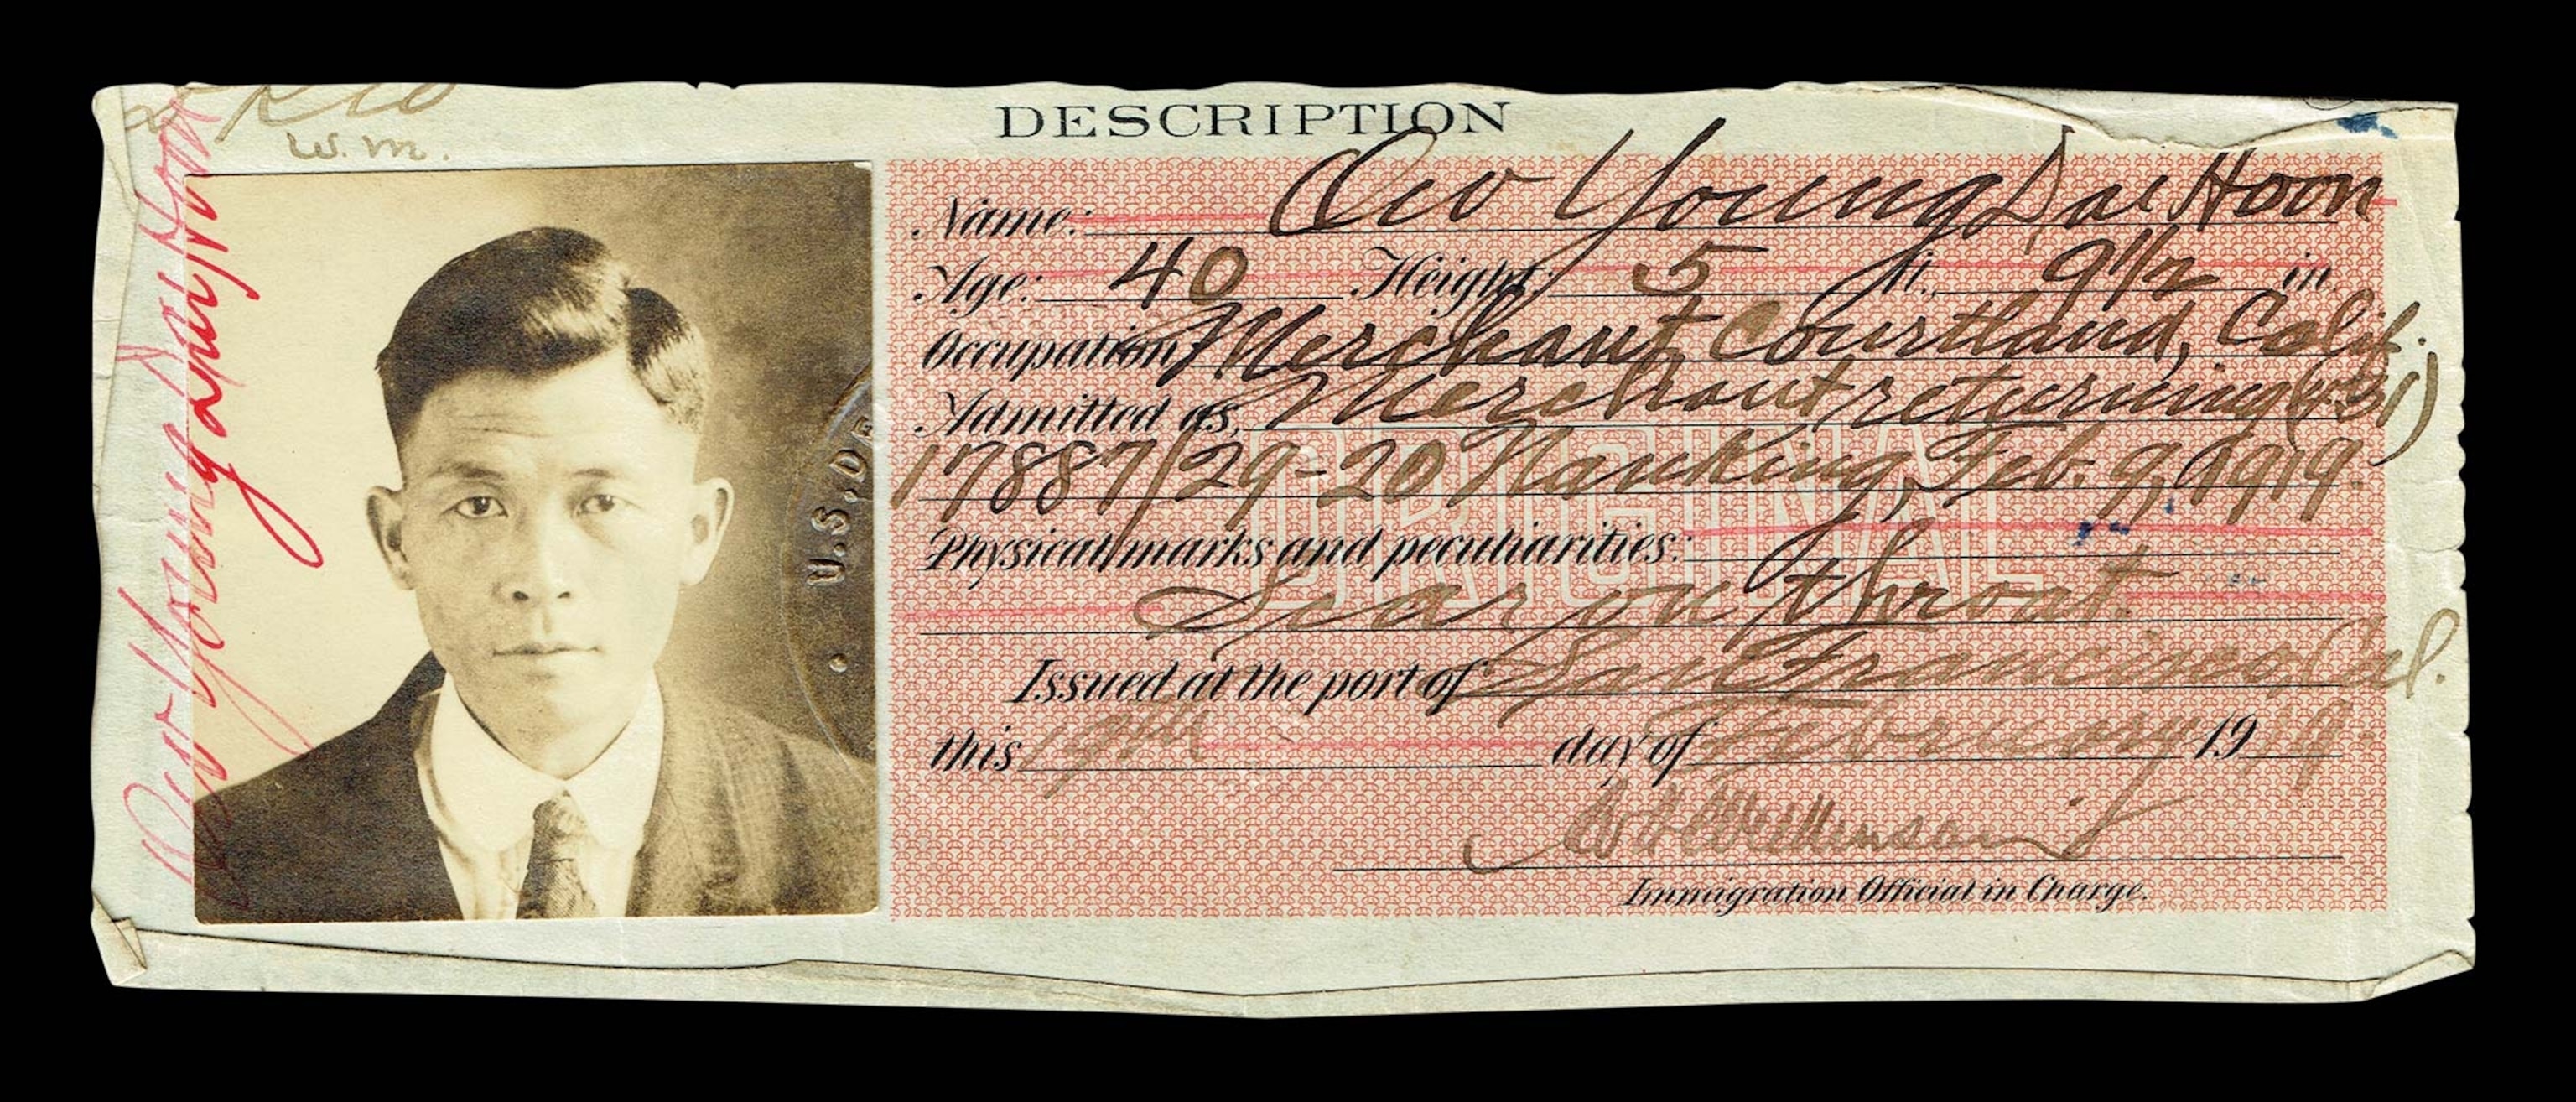 W.M.
DESCRIPTION
Name: Ow Young Dai Hoon
Age: 40 Height: 5 ft. 9 1/2 in
Occupation: Merchant, Courtland, Calif.
Admitted as, Merchant returning (431)
17887/29-20 Nanking, Feb. 9, 1919.
Physical marks and peculiarities:
Scar on throat.
Issued at the port of San Francisco, Cal.
this 19th day of February 1919.
Immigration Official in Charge.
ORIGINAL
U.S. DE
Ow Young Day Hoon